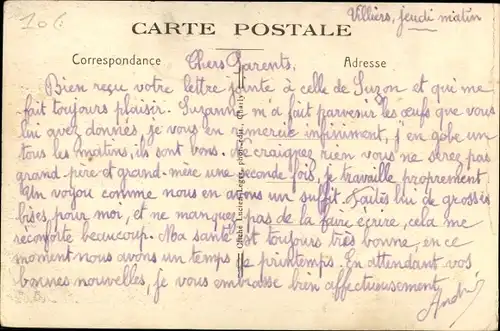 106
CARTE POSTALE
Villiers, jeudi matin
Correspondance
Adresse
Chers Parents,
Bien reçu votre lettre jointe à celle de Suzon et qui me
fait toujours plaisir. Suzanne m'a fait parvenir les œufs que vous
lui avez donnés, je vous en remercie infiniment, j'en gobe un
tous les matins, ils sont bons. Ne craignez rien vous ne serez pas
grand-père et grand-mère une seconde fois, je travaille proprement
Un voyou comme nous en avons un suffit. Faites lui de grosses
bises, pour moi, et ne manquez pas de la faire écrire, cela me
réconforte beaucoup. Ma santé est toujours très bonne, en ce
moment nous avons un temps de printemps. En attendant vos
bonnes nouvelles, je vous embrasse bien affectueusement
André
Cliché Lucien Léger, phot.-édit., Charly